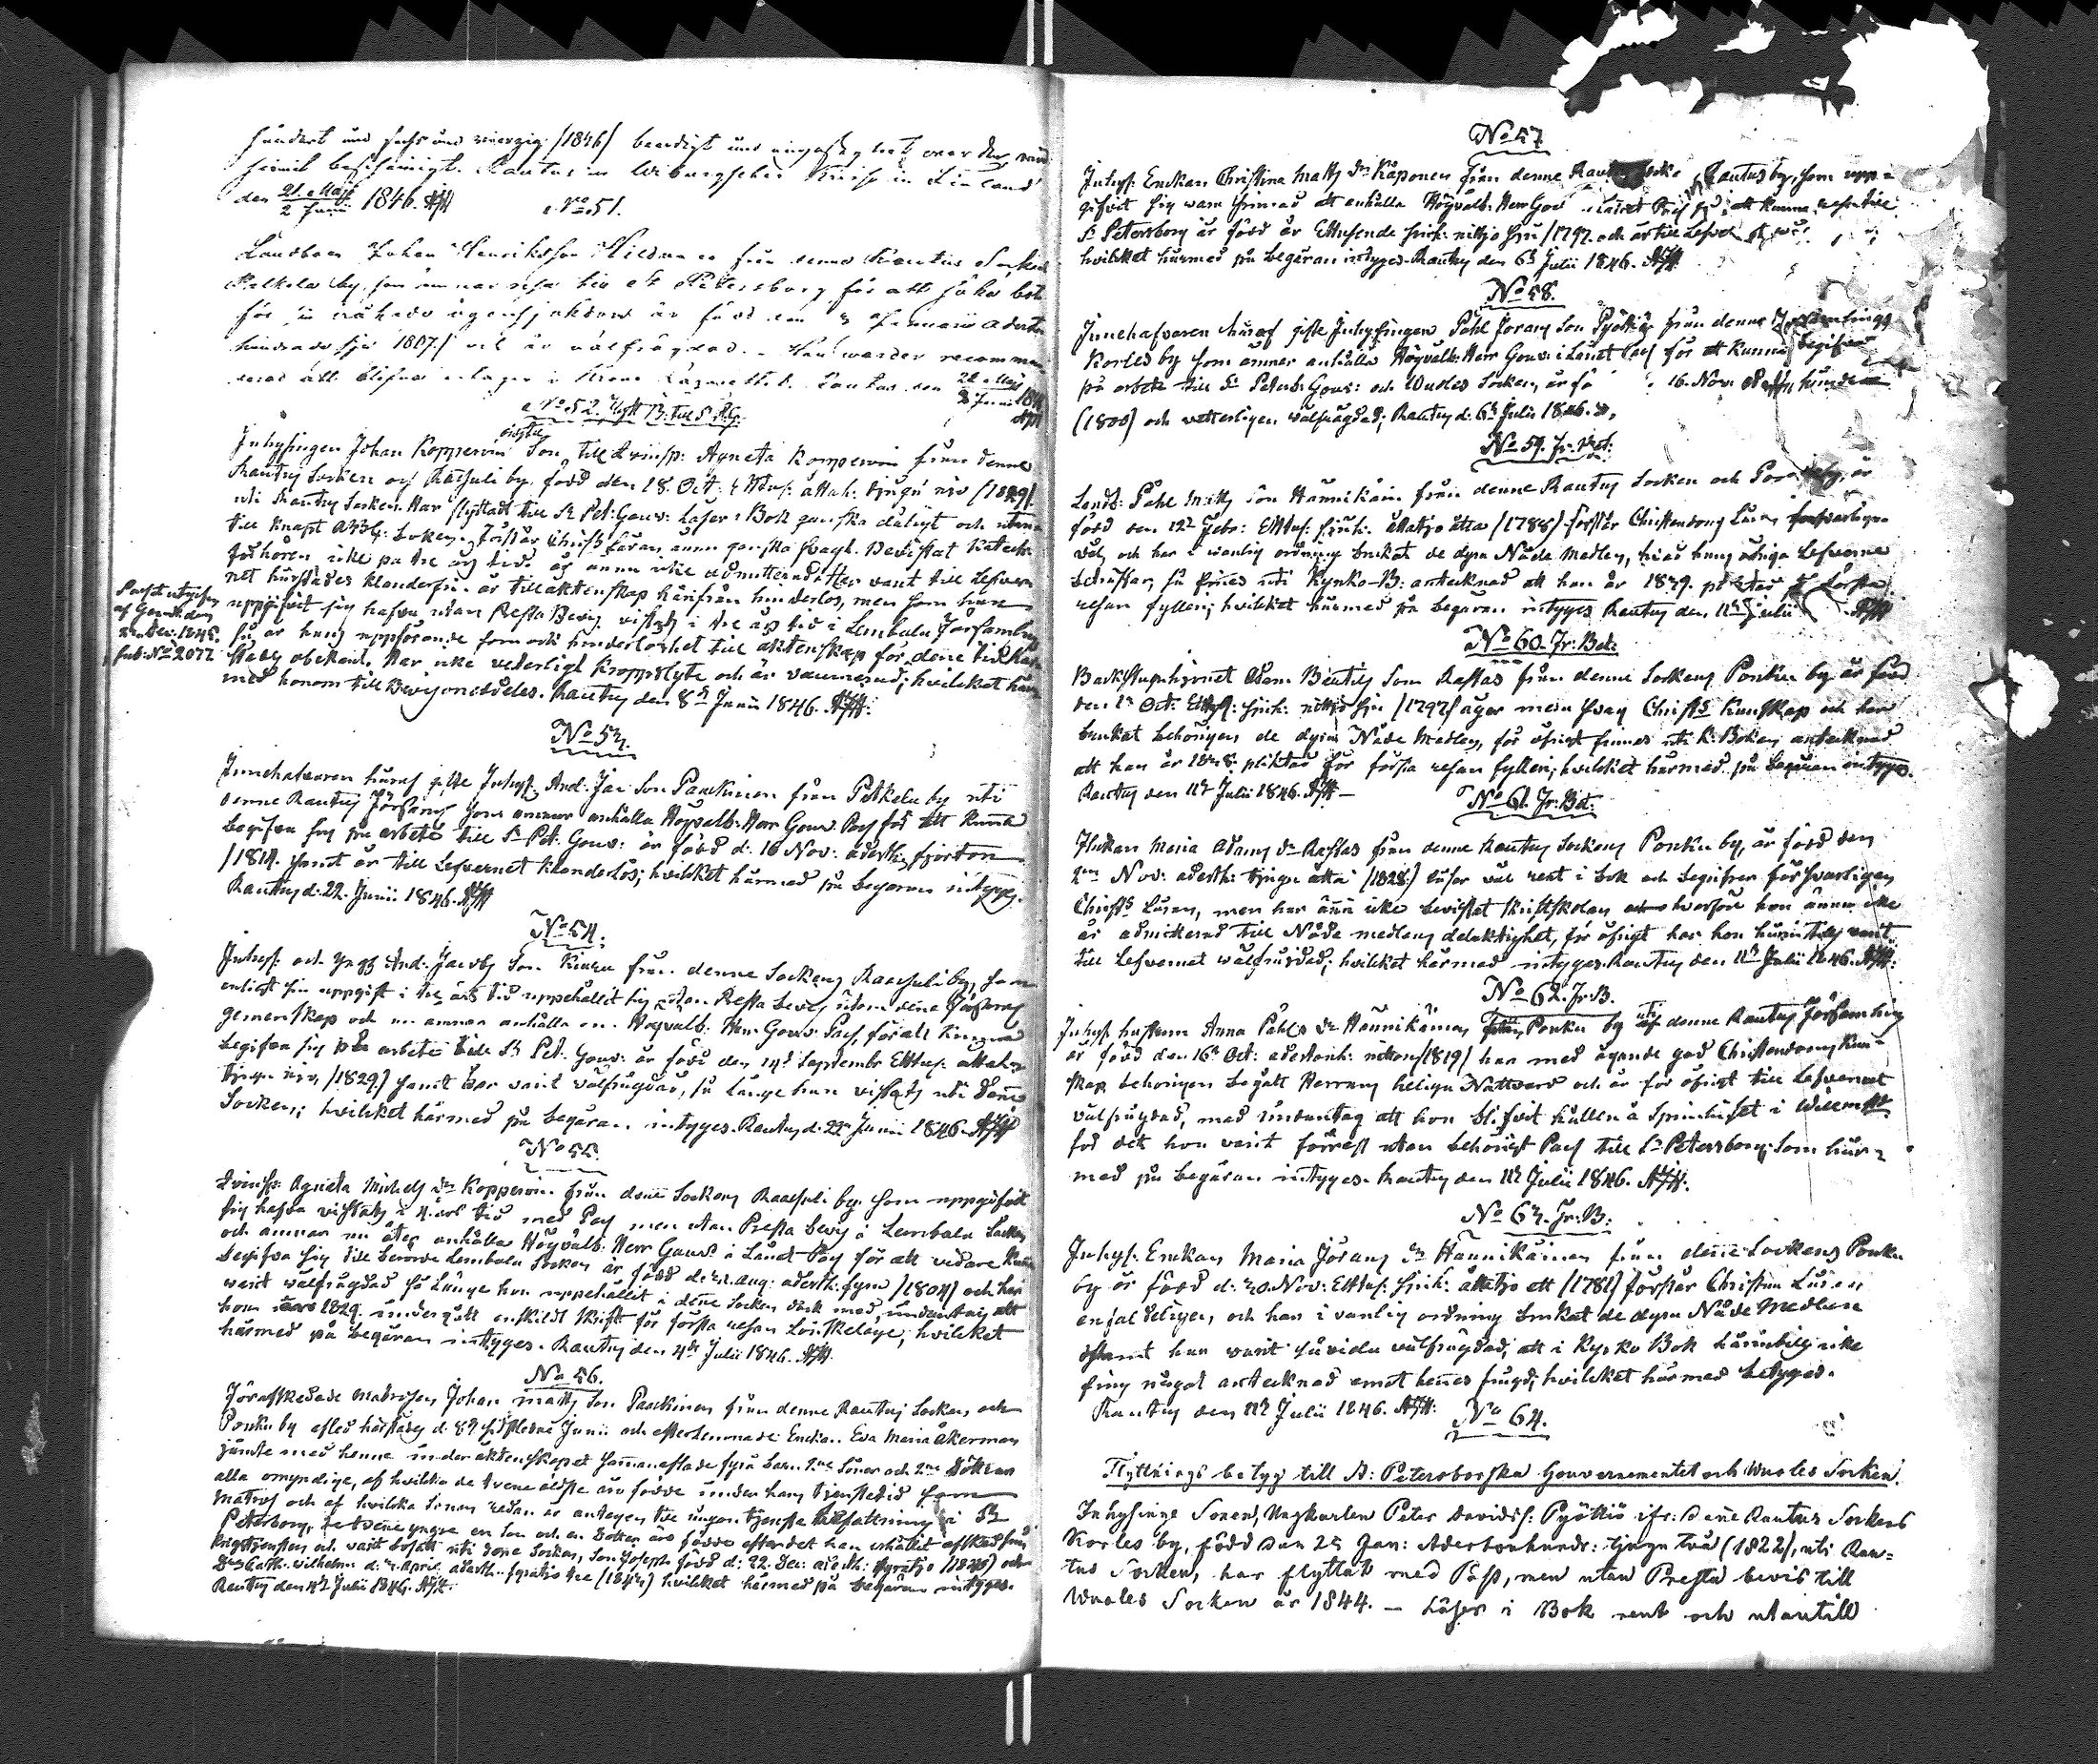 hundert und sechs und vierzig /1846/ beendigt und
hiemit bescheinigt. Rautus im Wiburgschen Kreise in Finland
den 21 Maji / 2 Junii 1846. AJH
No 51.
Landboen Johan Henriksson Hildunen från denna Rautus Socken
Palkela by, som ämnar resa till St Petersburg för att söka bot
för sin åkomma är född den 3 Januarii aderton
hundrade sju 1807/ och är välfrägdad. - Han warder recommen-
derad att blifva intagen i Krono Lazarettet. Rautus den 22 Maji / 3 Junii 1846
AJH
No 52. Flytt B. till St Pbg.
Inhysingen Johan Kopperoin Son, oägta till Qvinsp: Agneta Kopperoin från denne
Rautus Socken och Raasuli by, född den 18 Oct: Ettus: åttah: tjugu nio (1829)
uti Rautus Socken. Har flyttadt till St Pet: Gouv: Läser i Bok ganska dåligt och utan
till knapt ABC-Boken. Förstår Christs Läran ännu ganska svagt. Bevistat Katech:
förhören icke på tre års tid och ännu icke admitterad. Har varit till Lefver-
net härstädes klanderfri. är till äktenskap härifrån hinderlös, men som han
uppgifvit sig hafva utan Presta Bevis vistats i tre års tid i Lembala Församling
så är hans uppförande som och hinderlöshet till äktenskap för denne tid här-
städes obekant. Har icke vederligt kroppslyte och är vaccinerad; hvilket här-
med honom till Bevis meddeles. Rautus den 8de Junii 1846. AJH.
Passet utgifven
af Gouv: den
Dec: 1848.
sub No 2077
No 53.
Innehafvaren häraf gifte Inhys: And: Jör: Son Paukinen från Petkela by uti
denne Rautus Församl: som ämnar anhålla Högvälb: Herr Gouv: Pass för att kunna
begifva sig på arbete till St Pet: Gouv: är född d: 16 Nov: aderth: fjorton
/1814. samt är till Lefvernet klanderlös; hvilket härmed på begäran intygas.
Rautus d: 22. Junii 1846. AJH
No 54.
Inhys: och yngl And: Jacobs Son Kiuru från denne Sockens Raasuli by, som
enligt sin uppgift i tre års tid uppehållit sig utan Presta bevis utom denne Församl
gemenskap och nu ämnar anhålla om Högvälb: Herr Gouv: Pass, för att kunna
begifva sig på arbete till St Pet: Gouv: är född den 14de Septembr Ettus: åttah:
tjugu nio, /1829/ samt har varit välfrägdad, så länge han vistats uti denne
Socken; hvilket härmed på begäran intygas. Rautus d: 22 Junii 1846. AJH
No 55.
Qvinsp: Agneta Michels Dr Kopperoin från denne Sockens Raasuli by som uppgifvit
sig hafva vistats i 4 års tid med Pass men utan Presta bevis i Lembala Socken
och ämnar nu åter anhålla Högvälb: Herr Gouvs i Länet Pass för att vidare kunna
begifva sig till berörde Lembala Socken är född d: 22. Aug: aderth: fyra /1804/ och har
varit välfrägdad så länge hon uppehållit i denne Socken dock med undantag att
hon 1829 undergått enskildt skrift för första resan Lönskeläge; hvilket
härmed på begäran intygas. Rautus den 4de Julii 1846. AJH.
No 56.
Förafskedade Matrosen Johan Matts Son Paukinen från denne Rautus Socken och
Ponku by afled härstädes d: 8de sistledne Junii och efterlemnade Enckan Eva Maria Åkerman
jämte med henne under äktenskapet sammanaflade fyra barn 2ne Söner och 2ne Döttrar
alla omyndige, af hvilka de tvene äldste äro födde under hans tjenstetid som
Matros och af hvilka Sonen redan är antagen till ungen tjenste befattning i St
Petersborg, de tvene yngre en Son och en Dotter äro födde efterdet han erhållit afsked från
krigstjensten och varit bosatt uti denne Socken, Son Joseph född d: 22. Dec: aderth: fyratio (1840) och
Dr Cath: Vilhelm: d: 2 April aderth: fyratio tre (1843) hvilket härmed på begäran intygas.
Rautus den 4de Julii 1846. AJH.
No 57.
Inhys: Enckan Christina Matts Dr Kaponen från denne Rautus Socken Rautus by, som upp-
gifvit sig vara sinnad att anhålla Högvälb: Herr Gouv i Länet Pass för att kunna resa till
St Petersborg är född år Ettusende sjuh: nittio sju /1797. och är till Lefvernet
hvilket härmed på begäran intygas. Rautus den 6te Julii 1846. AJH.
No 58.
Innehafvaren häraf gifte Inhysingen Påhl Jörans Son Pyökkiö från denne Församlings
Korles by som ämnar anhålla Högvälb: Herr Gouv: i Länet Pass för att kunna begifva
på arbete till St Petersb: Gouv: och Wuoles Socken, är född 16. Nov: Adertonhundrade
(1800) och vetterligen välfrägdad; Rautus d: 6te Julii 1846.
No 59. Fr: Bet:
Landb: Påhl Matts Son Hännikäin från denne Rautus Socken och Ponku by, är
född den 12te Febr: Ettus: sjuh: åttatio åtta /1788/ förstår Christendoms Läran försvarligen
väl, och har i vanlig ordning brukat de dyra Nåde Medlen, hvad hans öfriga Lefverne
beträffar, så finnes uti Kyrko-B: antecknad att han år 1829. pliktat för första
resan fylleri; hvilket härmed på begäran intygas Rautus den 11te Julii AJH
No 60. Fr: Bet:
Backstuguhjonet Adam Bentis Son Rastas från denne Sockens Ponku by är född
den 1te Oct: Ettus: sjuh: nittio sju /1797/ äger mera svag Christs Kunskap och har
brukat behörigen de dyra Nåde Medlen, för öfrigt finnes uti K: Boken antecknad
att han år 1838 pliktat för första resan fylleri; hvilket härmed på begäran intygas.
Rautus den 11te Julii 1846. AJH -
No 61. Fr: Bt:
Flickan Maria Adams Dr Rastas från denne Rautus Sockens Ponku by, är född den
2dra Nov: aderth: tjugu åtta /1828/ läser väl rent i bok och begriper försvarligen
Christs Läran, men har ännu icke bevistat Skriftskolan hvarföre hon ännu icke
är admitterad till Nåde medlens delaktighet, för öfrigt har hon härintills varit
till Lefvernet välfrägdad; hvilket härmed intygas. Rautus den 11te Julii 1846. AJH.
No 62. Fr: B.
Inhys: hustrun Anna Påhls Dr Hännikäinen Ponku by uti denne Rautus Församling
är född den 16de Oct: adertonh: nitton /1819/ har med ägande god Christendoms Kun-
skap behörigen begått Herrans heliga Nattvard och är för öfrigt till Lefvernet
välfrägdad, med undantag att hon blifvit hållen å Spinnhuset i Willmst
för det hon varit förrest utan behörigt Pass till St Petersborg; Som här-
med på begäran intygas. Rautus den 11te Julii 1846. AJH.
No 63. Fr: B:
Inhys: Enckan Maria Jörans Dr Hännikäinen från denne Sockens Ponku
by är född d: 20. Nov: Ettus: sjuh: åttatio ett /1781/ förstår Christna Läran
enfaldeligen, och har i vanlig ordning brukat de dyra Nåde Medlen
samt har varit såvida välfrägdad, att i Kyrko Bok härintills icke
fins något antecknad emot hennes frägd; hvilket härmed betygas.
Rautus den 11te Julii 1846. AJH.
No 64.
Flyttnings betyg till St: Petersborgska Gouvernementet och Wuoles Socken.
Inhysinge Sonen, Ungkarlen Peter Davids: Pyökkiö ifr: denne Rautus Sockens
Korles by, född den 25 Jan: Adertonhundr: tjugu två (1822), uti Rau-
tus Socken, har flyttat med Pass, men utan Presta bevis till
Wuoles Socken år 1844. - Läser i Bok rent och utantill